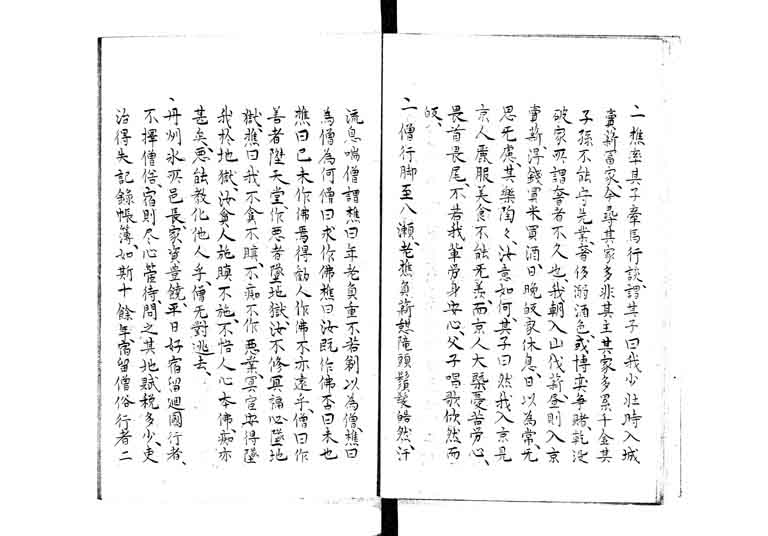 一樵率其子牽馬行談謂其子曰我少壯時入城
賣薪富家今尋其家多非其主其家多累千金其
子孫不能守先業著侈溺酒色或博奕每賭乾没
破家所謂奢者不久也我朝入山伐薪昼則入京
賣薪得錢買米買酒日晚皈家休息日以為常无
思无慮其樂陶々汝意如何其子曰然我入京見
京人麗服美食不能无羨而京人大槩憂苦労心
畏首畏尾不若我輩労身安心父子唱歌欣然而
皈
一僧行脚至八瀬老樵負薪憩陁頭鬚髮皓然汗
流息喘僧謂樵曰年老負重不若剃以為僧樵曰
為僧為何僧曰求作佛樵曰汝既作佛否曰未也
樵曰己未作佛焉得勧人作佛不亦遠乎僧曰作
善者陞天堂作悪者墜地獄汝不修冥福心墜地
獄樵曰我不貪不瞋不痴不作悪業冥官安得墜
我於地獄汝貪人施瞋不施不悟人心本佛痴亦
甚矣悪能教化他人乎僧无對逃去
丹州氷所邑長家資豊饒平日好宿留廻國行者
不擇僧俗宿則尽心管待問之其地賦税多少吏
治得失記録帳簿如斯十餘年宿留僧俗行者二